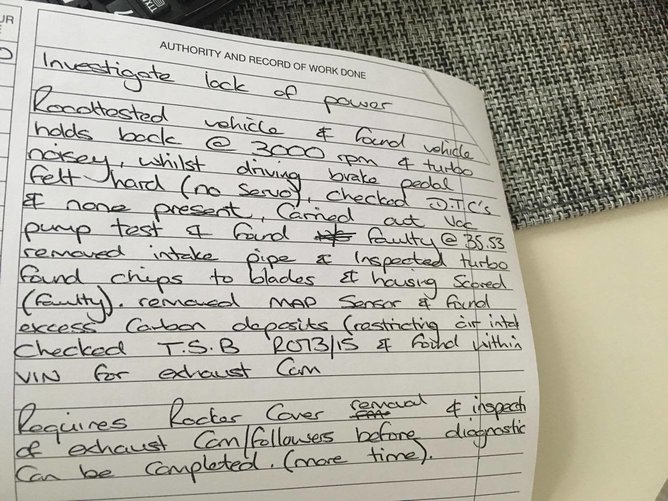 UR
AUTHORITY AND RECORD OF WORK DONE
Investigate lack of power
Roadtested vehicle & found vehicle
holds back @ 3000 rpm & turbo
noisey, whilst driving brake pedal
felt hard (no servo), checked D.T.C's
& none present, Carried out Vac
pump test & found faulty @ 35.53
removed intake pipe & Inspected turbo
found chips to blades & housing Scored
(faulty). removed MAP Sensor & found
excess Carbon deposits (restricting air intak
Checked T.S.B 2073/15 & found within
VIN for exhaust Cam
Requires Rocker Cover removal & inspecti
of exhaust Cam/followers before diagnostic
Can be completed. (more time).